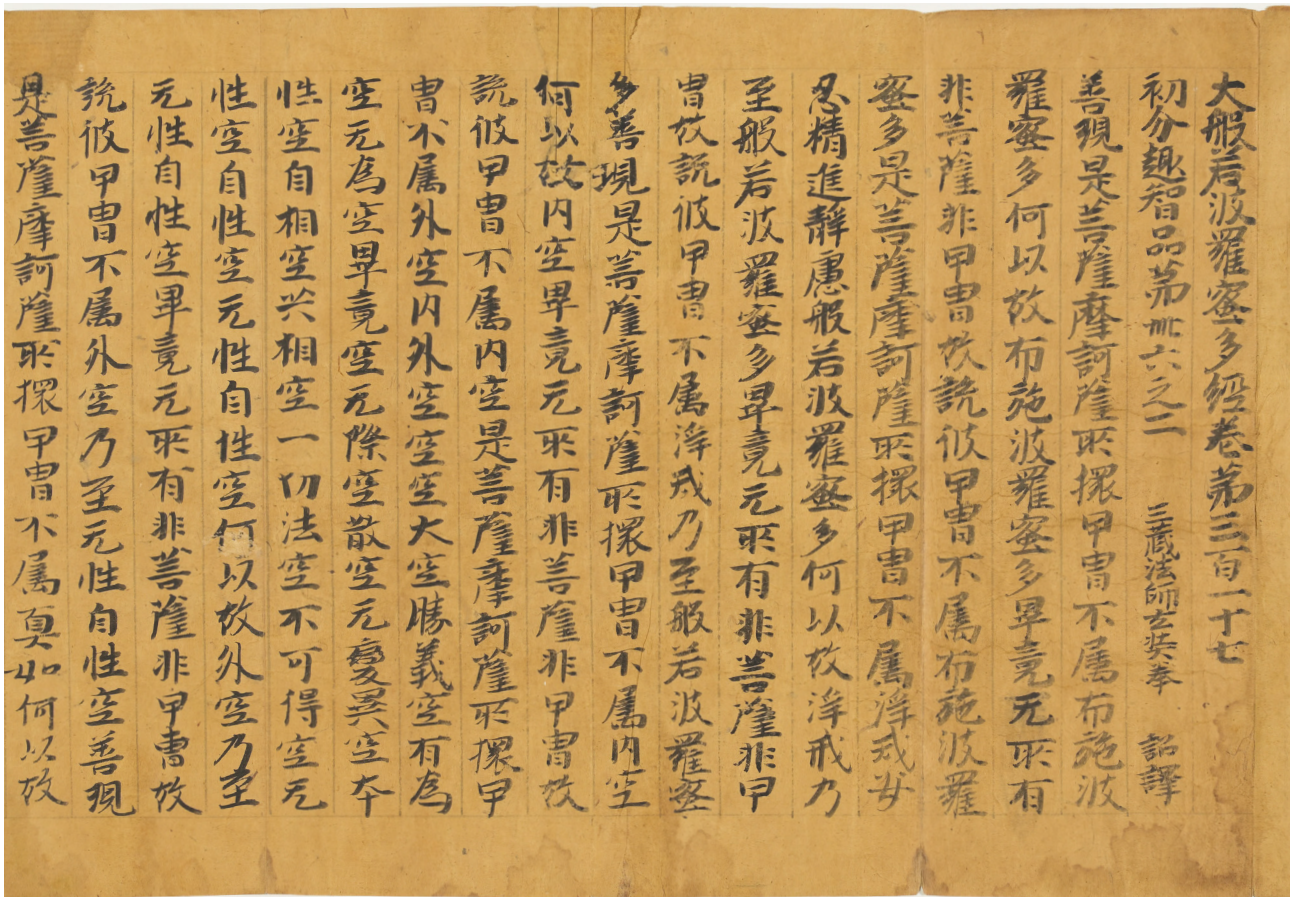 大般若波羅蜜多經卷第三百一十七
初分趣智品第卌六之二 三藏法師玄奘奉 詔譯
善現是菩薩摩訶薩所擐甲冑不属布施波
羅蜜多何以故布施波羅蜜多畢竟无所有
非菩薩非甲冑故說彼甲冑不属布施波羅
蜜多是菩薩摩訶薩所擐甲冑不属淨戒安
忍精進靜慮般若波羅蜜多何以故淨戒乃
至般若波羅蜜多畢竟无所有非菩薩非甲
冑故說彼甲冑不属淨戒乃至般若波羅蜜
多善現是菩薩摩訶薩所擐甲冑不属内空
何以故内空畢竟无所有非菩薩非甲冑故
說彼甲冑不属内空是菩薩摩訶薩所擐甲
冑不属外空内外空空空大空勝義空有為
空无為空畢竟空无際空散空无變異空本
性空自相空共相空一切法空不可得空无
性空自性空无性自性空何以故外空乃至
无性自性空畢竟无所有非菩薩非甲冑故
說彼甲冑不属外空乃至无性自性空善現
是菩薩摩訶薩所擐甲冑不属真如何以故